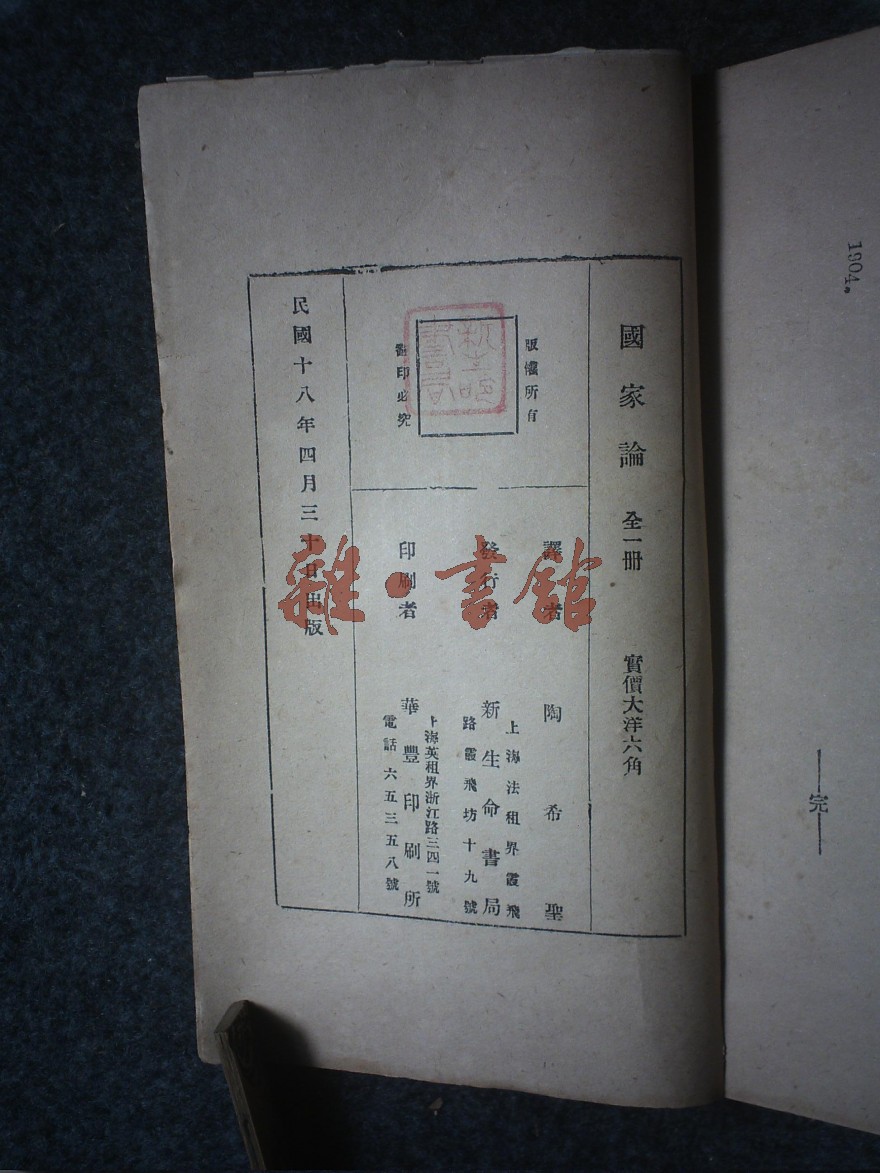 國家論 全一冊 實價大洋六角
版權所有
翻印必究
譯者 陶希聖
發行者 新生命書局
上海法租界霞飛
路霞飛坊十九號
印刷者 華豐印刷所
上海英租界浙江路三四一號
電話六五三五八號
民國十八年四月三十日出版
1904.
完
雜·書館